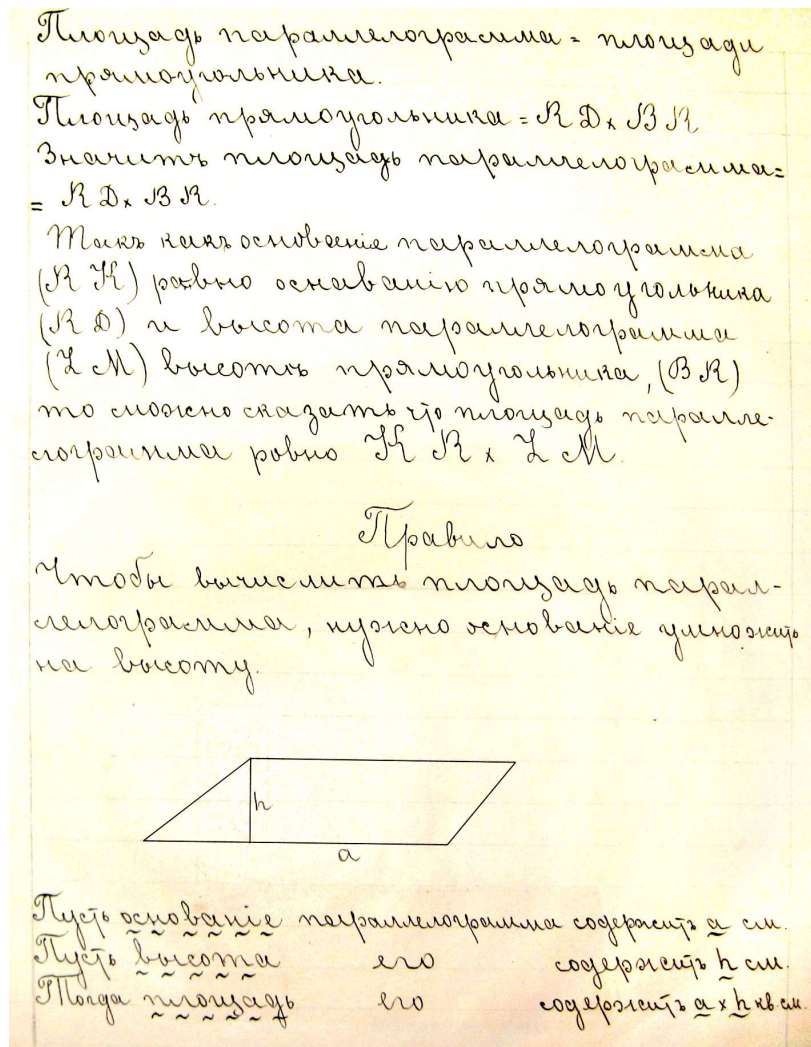 Площадь параллелограмма = площади
прямоугольника.
Площадь прямоугольника = R D x B R
Значитъ площадь параллелограмма=
= R D x B R.
Такъ какъ основаніе параллелограмма
(R K) равно оснаванію прямоугольника
(R D) и высота параллелограмма
(L M) высотѣ прямоугольника, (B R)
то можно сказать что площадь паралле-
лограмма ровно K R x L M.
Правило
Чтобы вычислить площадь парал-
лелограмма, нужно основаніе умножить
на высоту.
h
a
Пусть основаніе параллелограмма содержитъ a см.
Пусть высота его содержитъ h см.
Тогда площадь его содержитъ a x h кв.см.